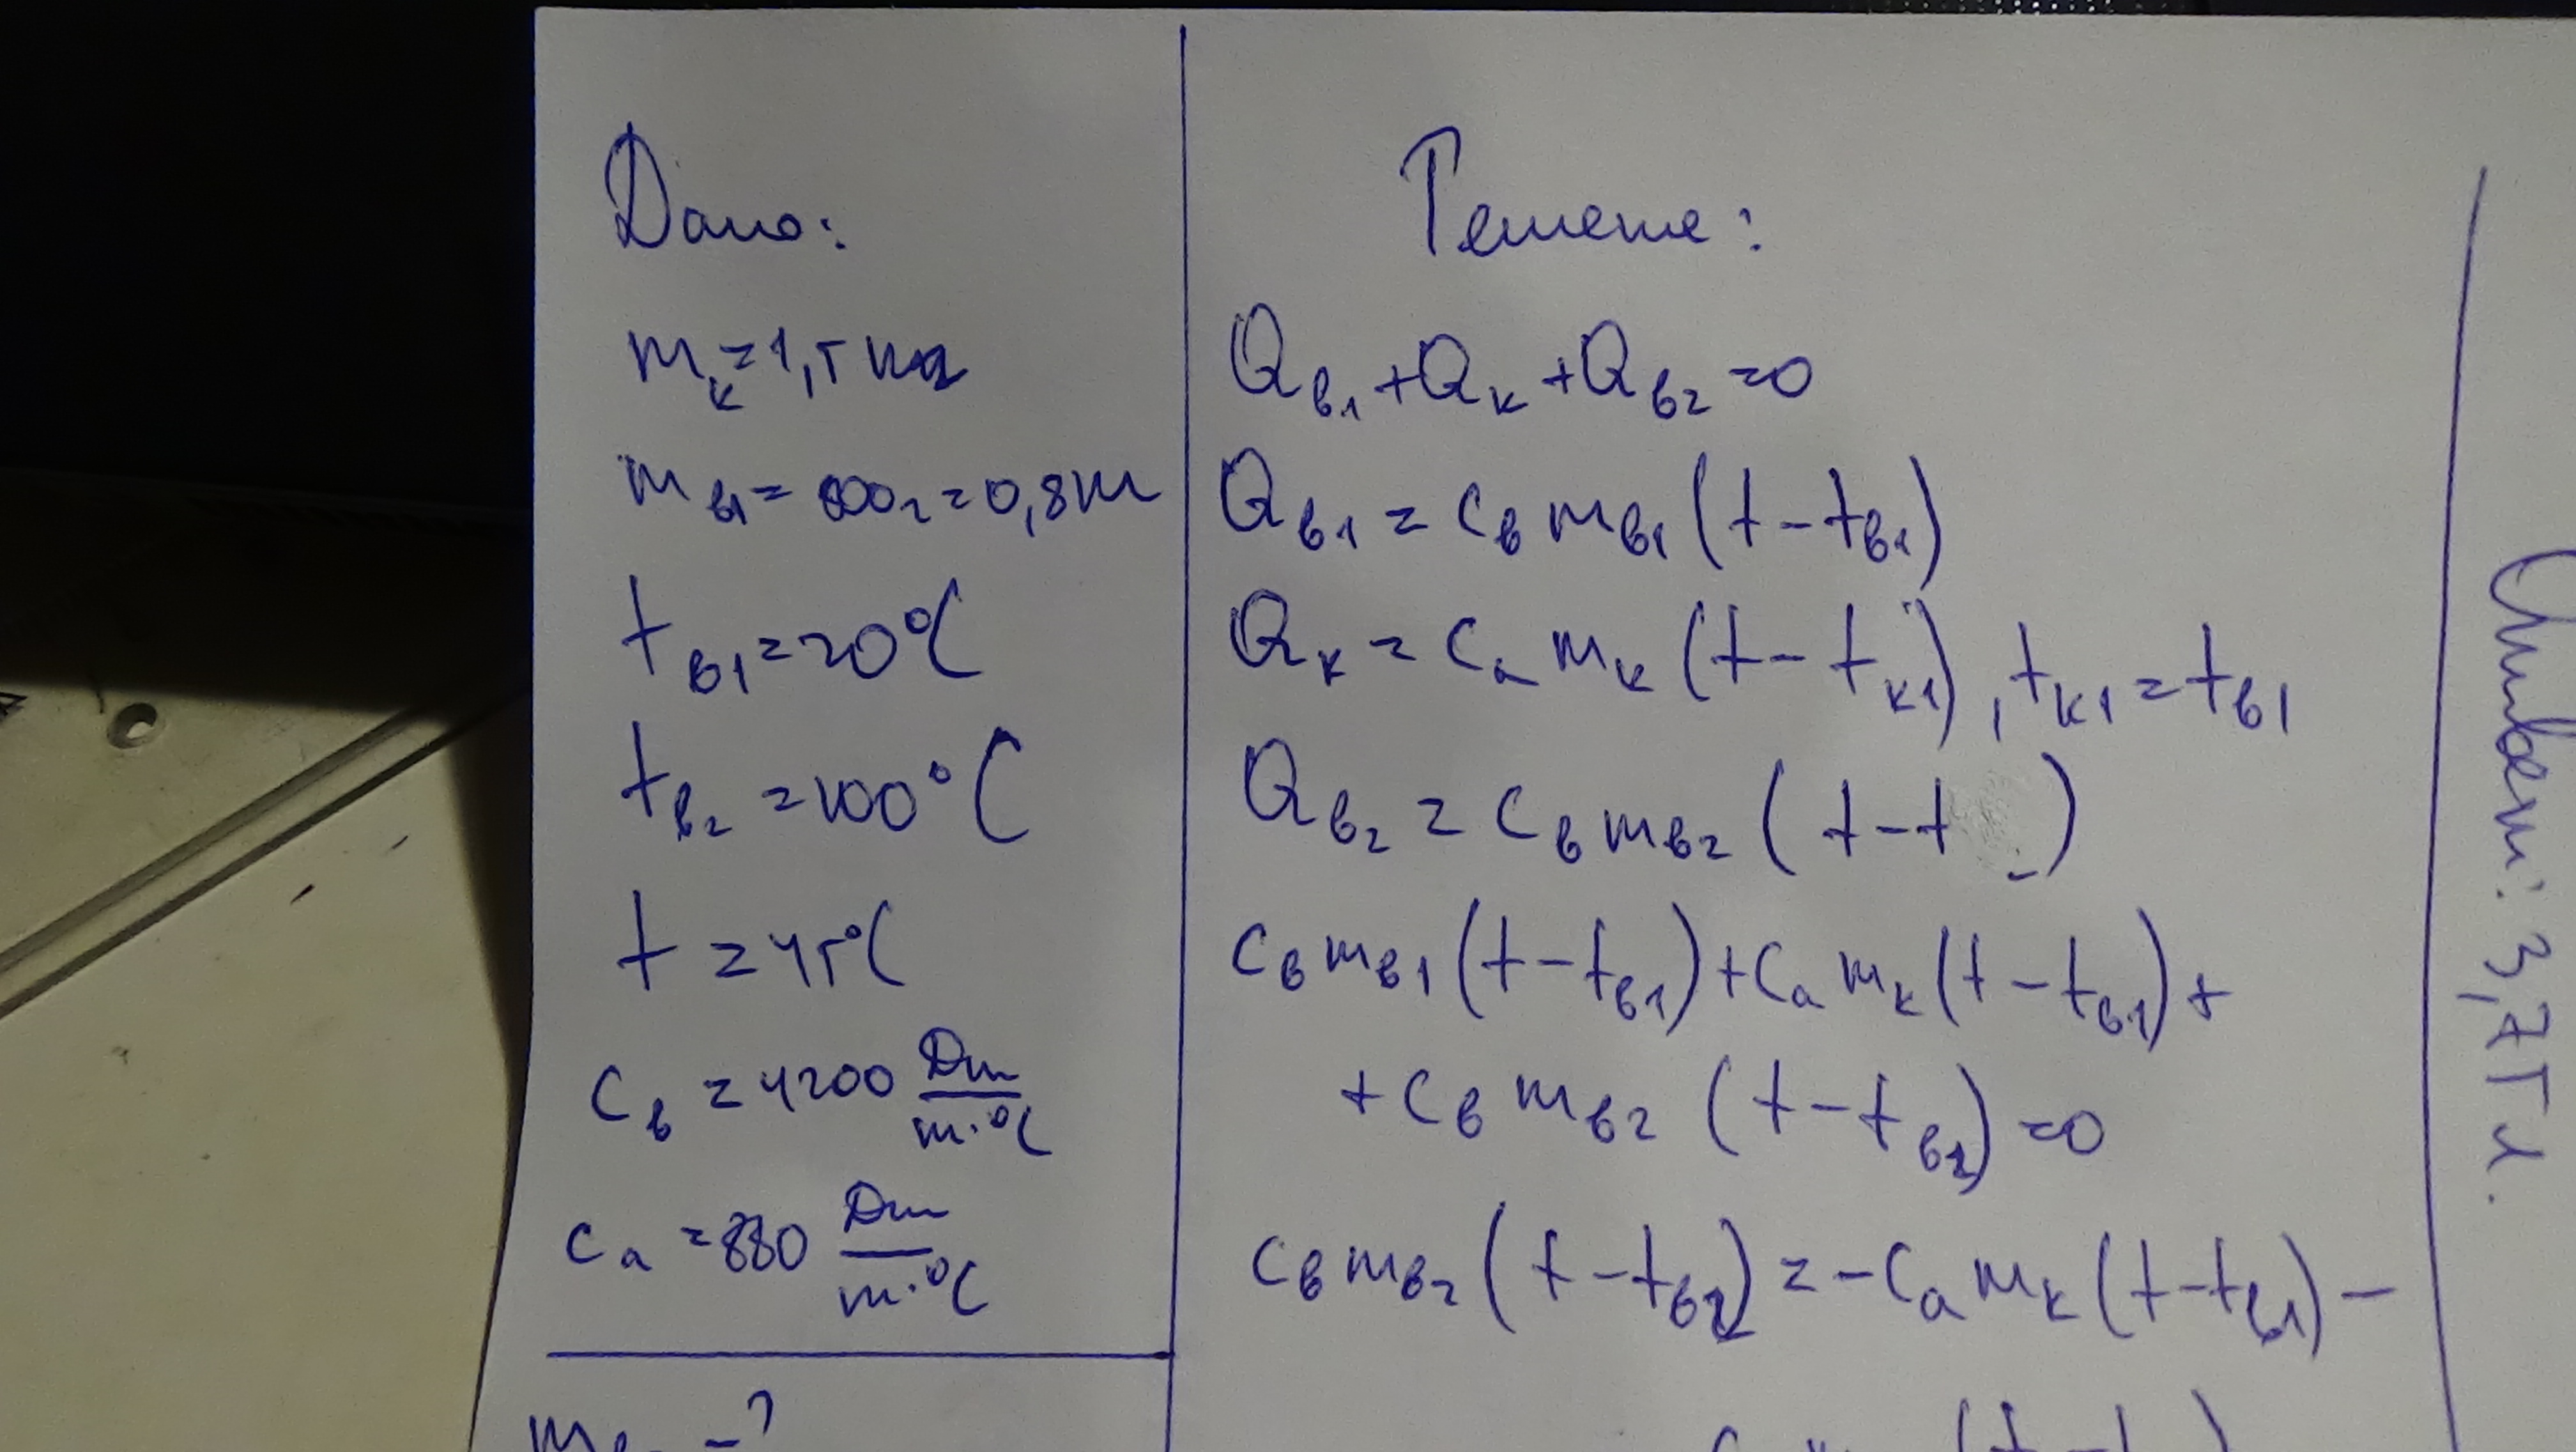 Дано:
m_к = 1,5 кг
m_в1 = 800г = 0,8кг
t_в1 = 20°C
t_в2 = 100°C
t = 45°C
c_в = 4200 Дж/кг·°C
c_а = 880 Дж/кг·°C
Решение:
Q_в1 + Q_к + Q_в2 = 0
Q_в1 = c_в m_в1 (t - t_в1)
Q_к = c_а m_к (t - t_к1), t_к1 = t_в1
Q_в2 = c_в m_в2 (t - t )
c_в m_в1 (t - t_в1) + c_а m_к (t - t_в1) +
+ c_в m_в2 (t - t_в2) = 0
c_в m_в2 (t - t_в2) = - c_а m_к (t - t_в1) -
Ответ: 3,75 л.